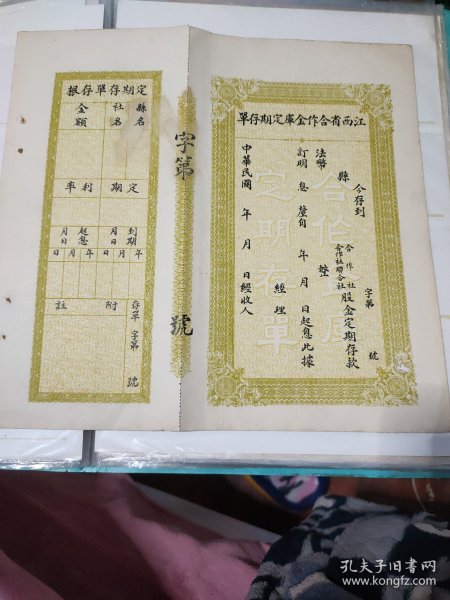 江西省合作金庫定期存單
字第 號
今存到
縣 合作社 合作社聯合社 股金定期存款
法幣 整
訂明 息 釐自 年 月 日起息此據
經理
中華民國 年 月 日經收人
合作金庫
定期存單
字第 號
定期存單存根
縣名
社名
金額
定期
利率
到期月日
起息月日
年月日
年月日
存單 字第 號
附註
孔夫子旧书网
www.kongfz.com